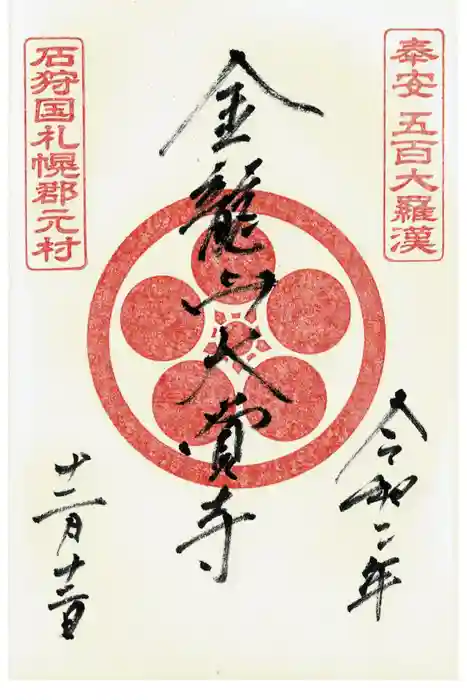 奉安 五百大羅漢
令和二年
金龍山大覚寺
十二月十三日
石狩国札幌郡元村